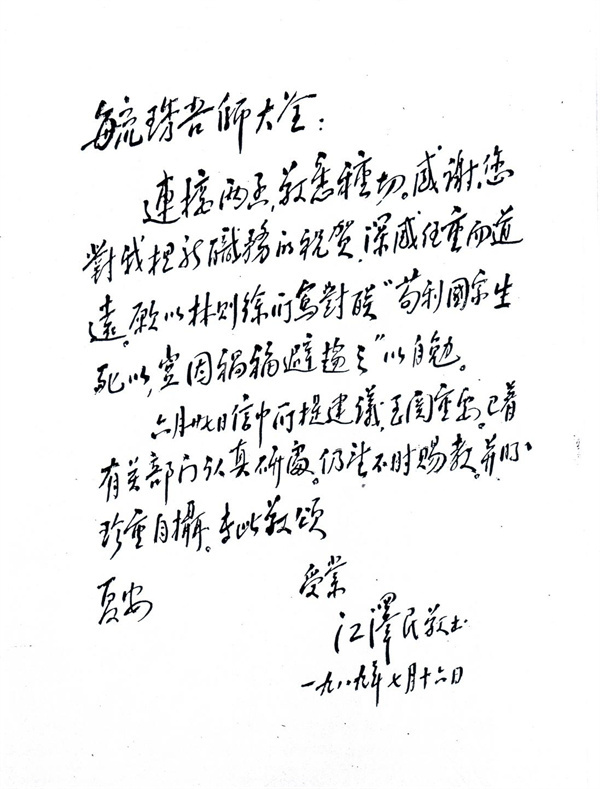 毓琇吾师大鉴：
連接两函，敬悉種切。感谢您
對我担新職務的祝贺，深感任重而道
遠。愿以林则徐所寫對联“苟利國家生
死以，豈因祸福避趋之”以自勉。
六月廿七日信中所提建議，至関重要。已着
有关部门认真研處。仍望不时赐教。并盼
珍重自攝。专此敬颂
夏安
受業
江澤民敬上
一九八九年七月十六日